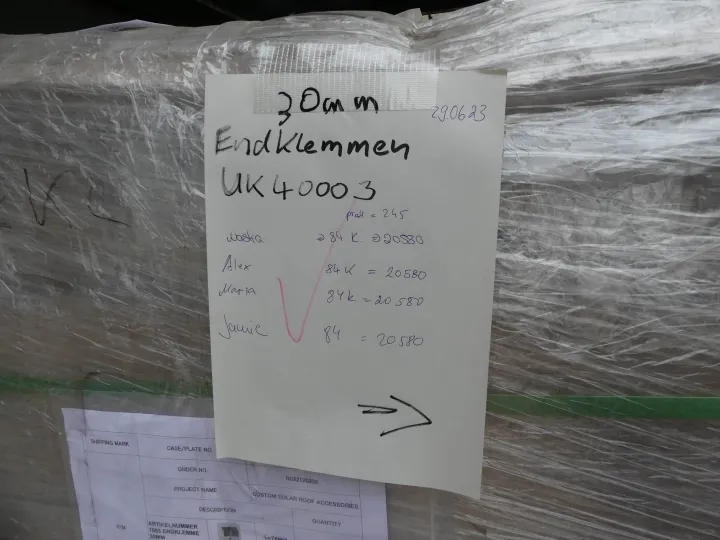 30mm
29.06.23
Endklemmen
UK40003
= 245
84 K => 20580
Alex 84K = 20580
Maria 84K = 20580
84 = 20580
SHIPPING MARK
CASE/PLATE NO.
ORDER NO.
PROJECT NAME
CUSTOM SOLAR ROOF ACCESSORIES
DESCRIPTION
QUANTITY
ARTIKELNUMMER
ENDKLEMME
30MM